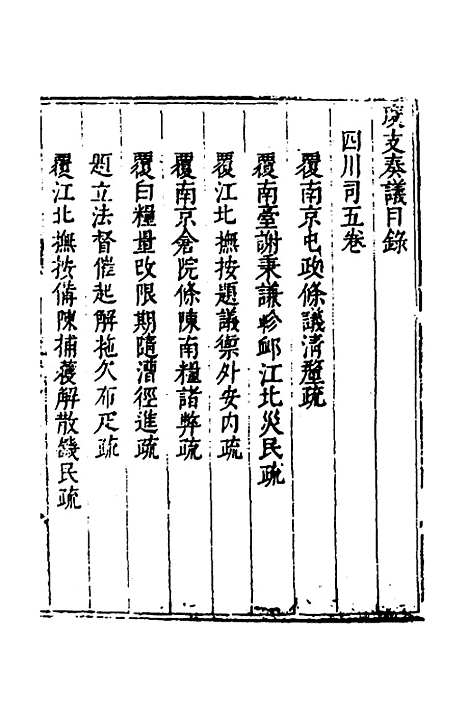 度支奏議目錄
四川司五卷
覆南京屯政條議清釐疏
覆南臺謝秉謙軫䘏江北災民疏
覆江北撫按題議禦外安內疏
覆南京倉院條陳南糧諸弊疏
覆白糧量改限期隨漕徑進疏
題立法督催起解拖欠布疋疏
覆江北撫按備陳捕蝗解散饑民疏